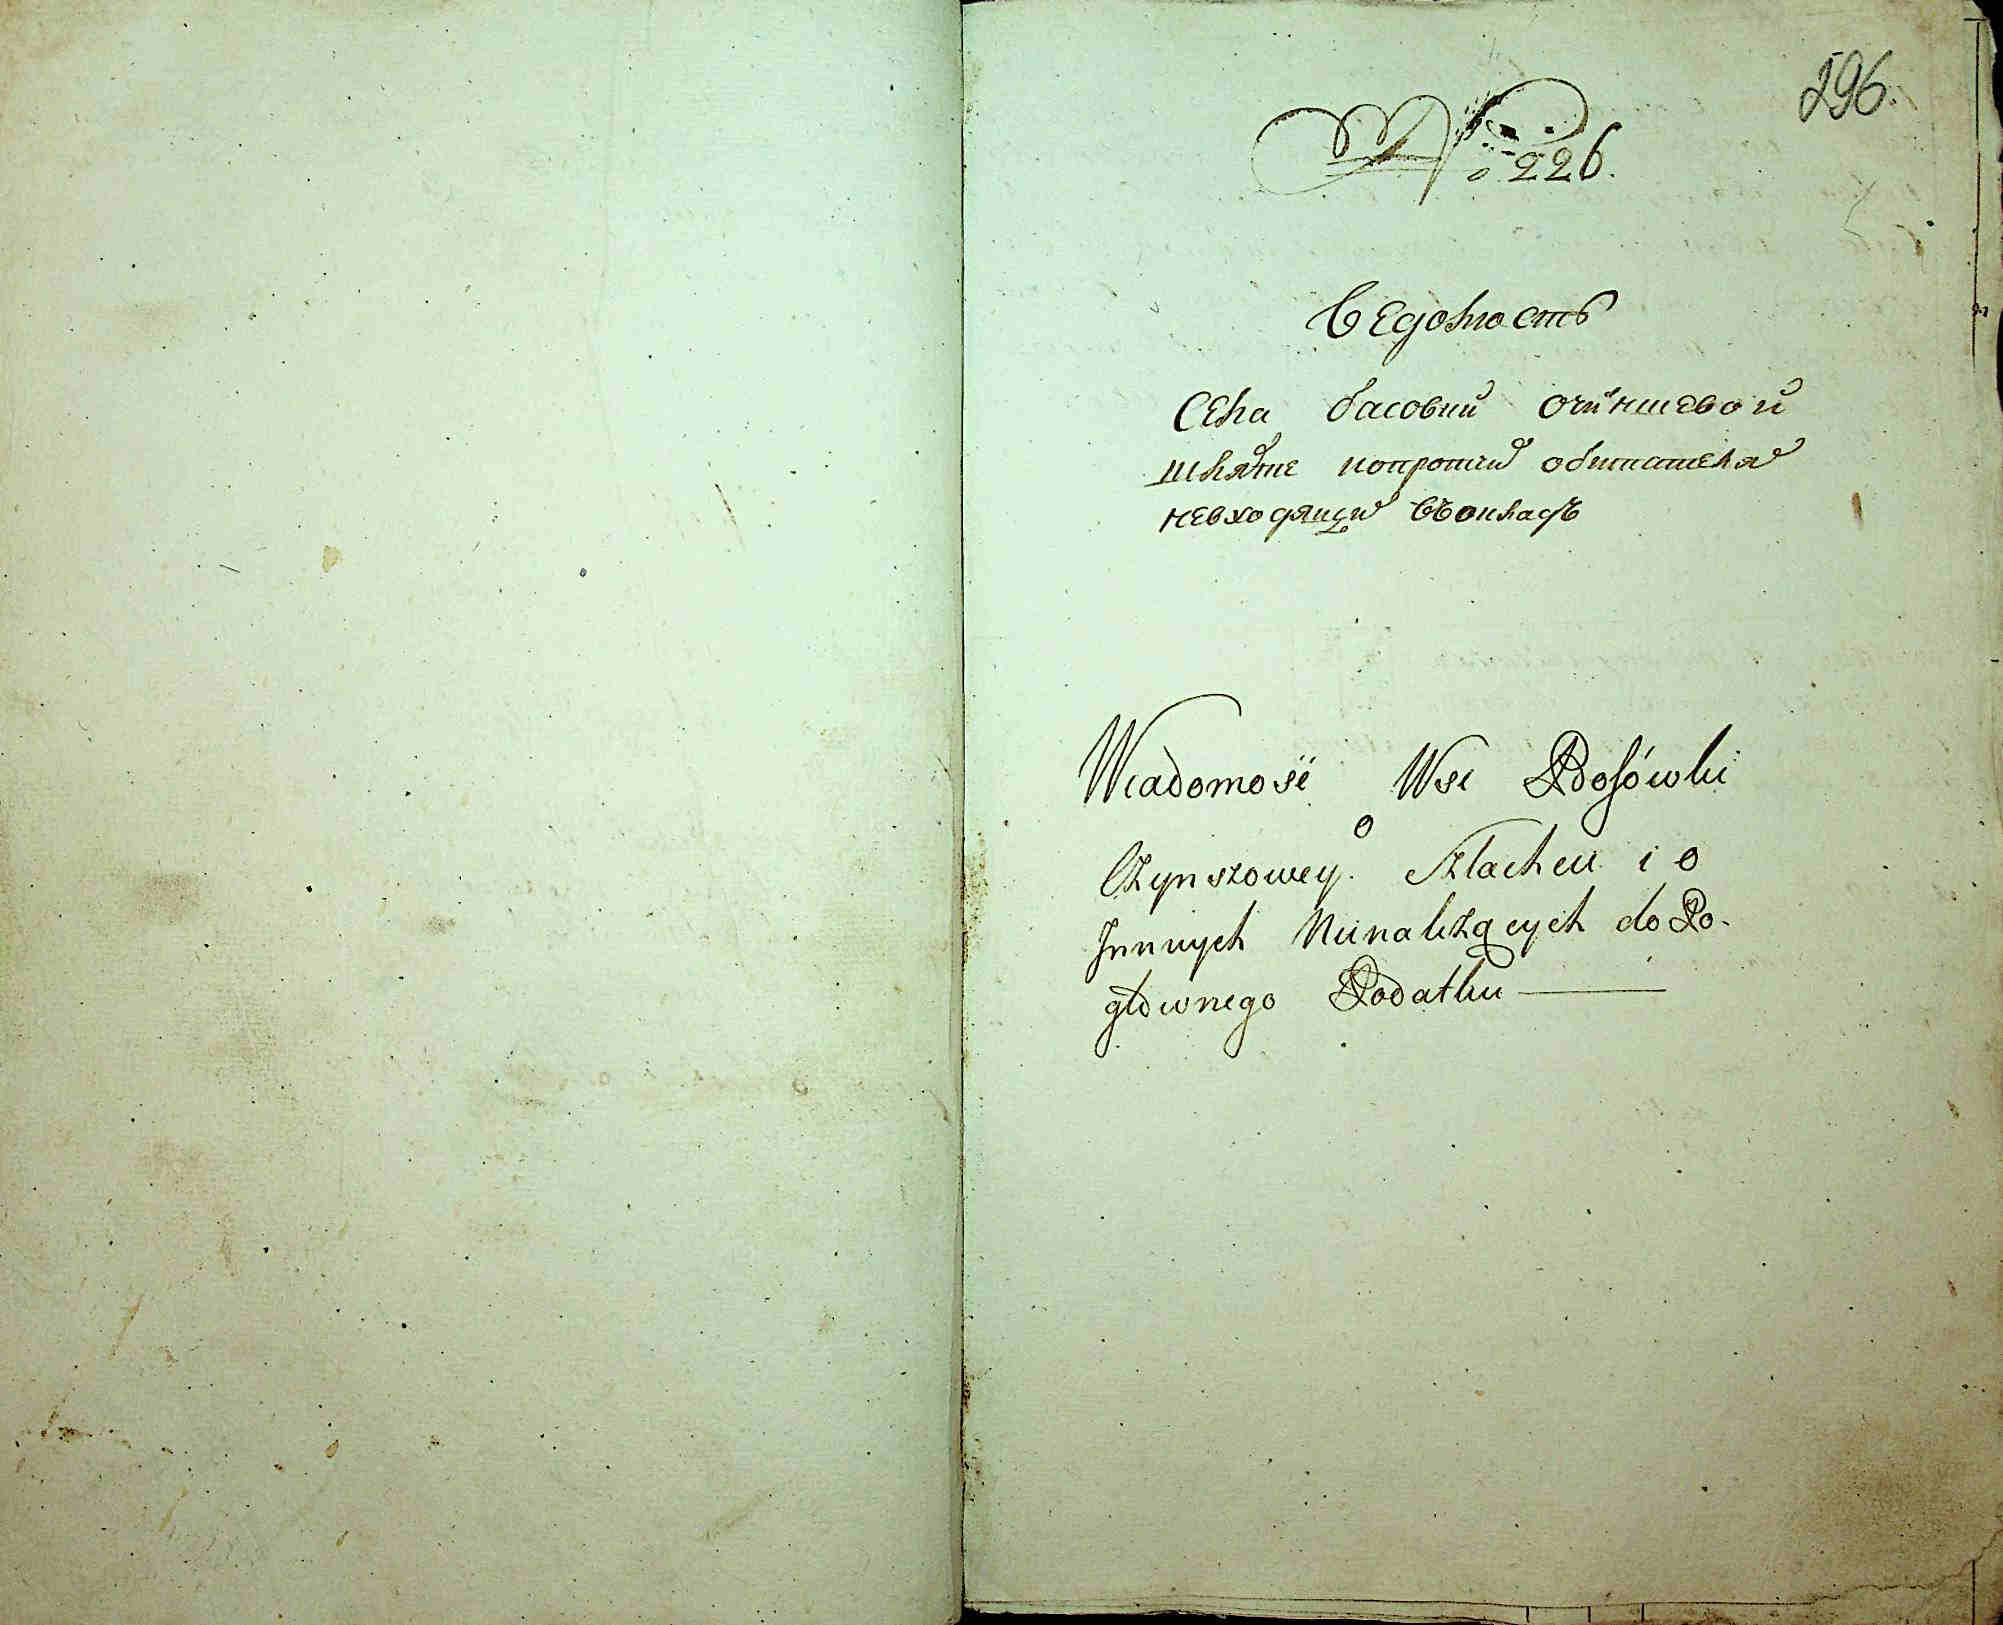 296.
№ 226.
Ведомость
Села басовки очиншевой
шляхте ипротчи обитателя
невходящи въокладъ
Wiadomość Wsi Bosówki
o
Czynszowey Szlachcie i o
Innych Nienależących do Po-
głównego Podatku